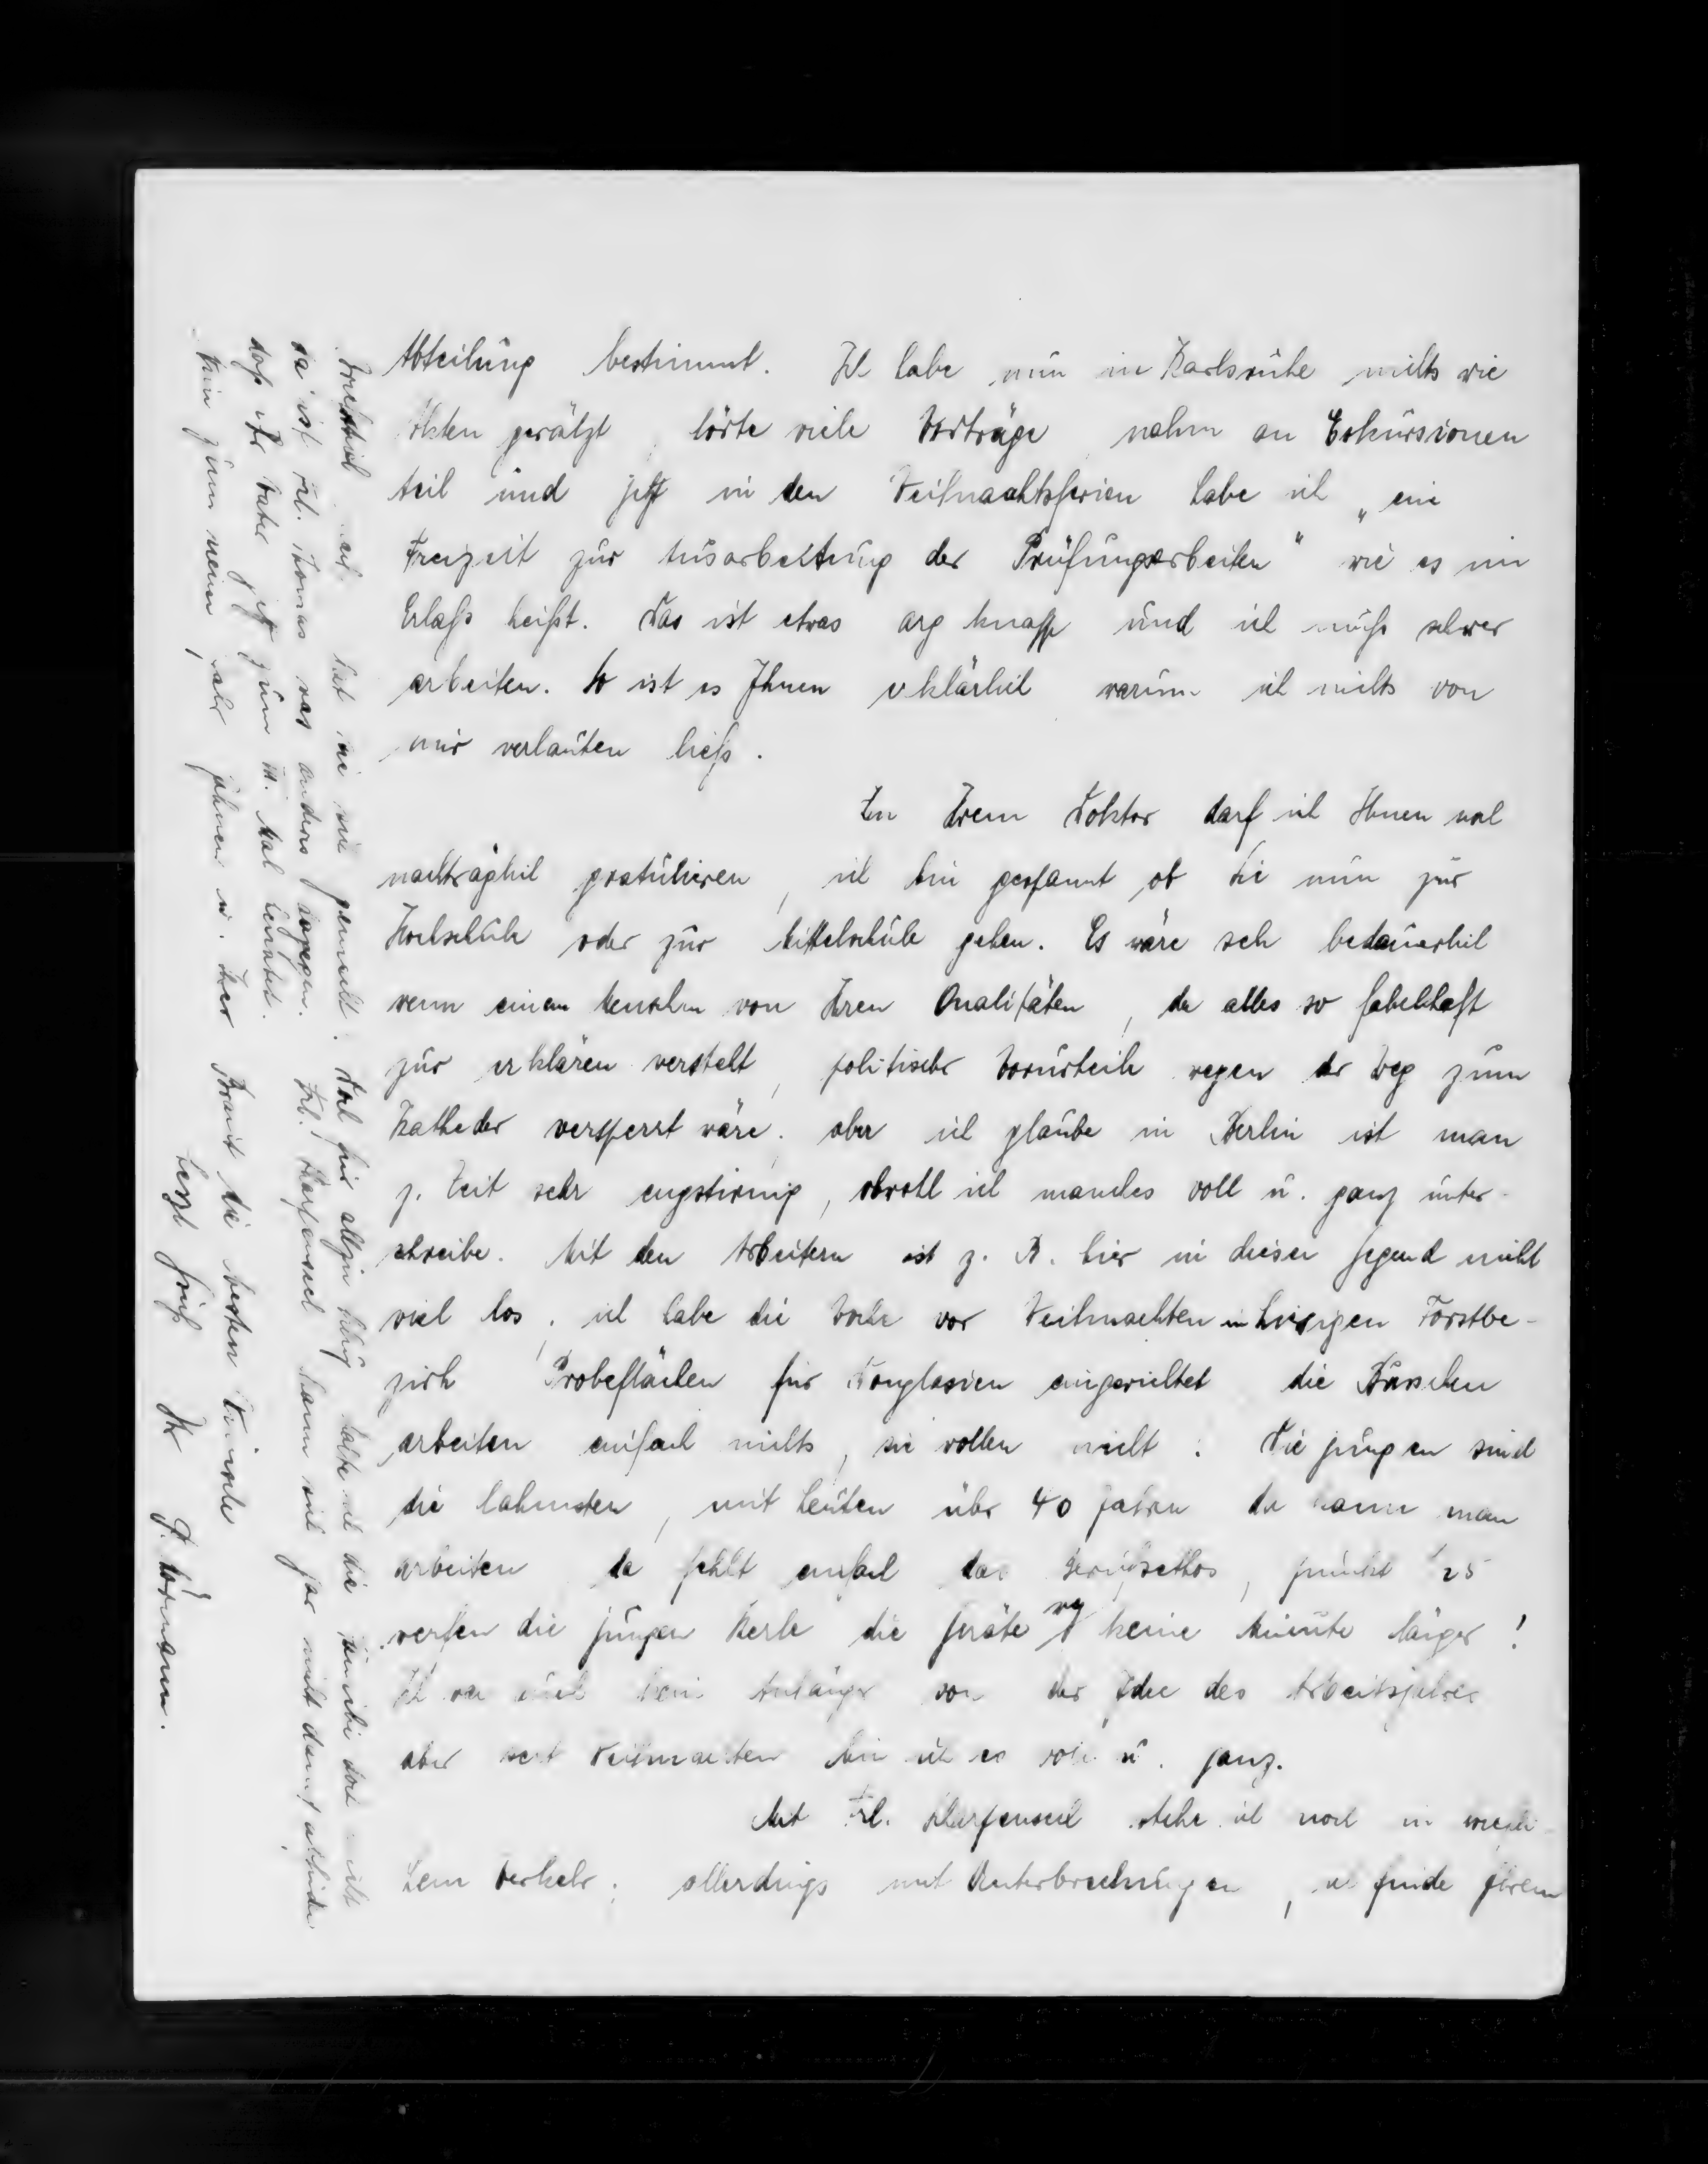 Abteilung bestimmt. Ich habe nun in Karlsruhe nichts wie
Akten gewälzt, hörte viele Vorträge, nahm an Exkursionen
teil und jetzt in den Weihnachtsferien habe ich „eine
Freizeit zur Ausarbeitung der Prüfungsarbeiten" wie es im
Erlaß heißt. Das ist etwas arg knapp und ich muß schwer
arbeiten. So ist es Ihnen erklärlich warum ich nichts von
mir verlauten ließ.
Zu Ihrem Doktor darf ich Ihnen wohl
nachträglich gratulieren, ich bin gespannt ob Sie nun zur
Hochschule oder zur Mittelschule gehen. Es wäre sehr bedauerlich
wenn einem Menschen von Ihren Qualitäten, der alles so fabelhaft
zur erklären versteht, politischer Vorurteile wegen der Weg zum
Katheder versperrt wäre. aber ich glaube in Berlin ist man
z. Zeit sehr engstirnig, obwohl ich manches voll u. ganz unter-
schreibe. Mit den Arbeitern ist z. B. hier in dieser Gegend nicht
viel los, ich habe die Woche vor Weihnachten im hiesigen Forstbe-
zirk Probeflächen für Douglasien eingerichtet die Burschen
arbeiten einfach nichts, sie wollen nicht: Die jungen sind
die lahmsten, mit Leuten über 40 Jahren da kann man
arbeiten da fehlt einfach das Berufsethos, punkt 1/2 5
werfen die jungen Kerle die Geräte weg keine Minute länger!
Ich war nie kein Anhänger von der Idee des Arbeitsjahres
aber seit Weihnachten bin ich es voll u. ganz.
Mit Frl. Harfenseel stehe ich noch in
Verkehr; allerdings mit Unterbrechungen, ich finde ihren
hat sie nie gemacht. Doch für allzu halte ich die
da ist Frl. Thomas was anders dagegen. Frl. Harfensel kann sich gar nicht damit abfinden
daß Ihr Vater jetzt zum III. Mal heiratet.
zum neuen Jahr Ihnen u. Ihrer Braut die besten Wünsche
herzl grüßt Ihr P. Wörmann.